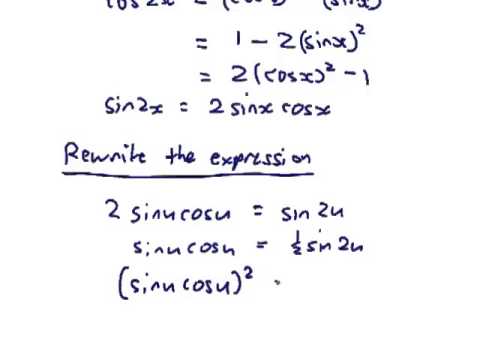 cos2x = (cosx)² - (sinx)²
= 1 - 2(sinx)²
= 2(cosx)² - 1
sin2x = 2 sinx cosx
Rewrite the expression
2 sinu cosu = sin 2u
sinu cosu = ½ sin 2u
(sinu cosu)²